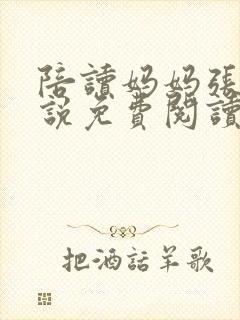 陪讀妈妈張
說免費閱讀
把酒話羊歌